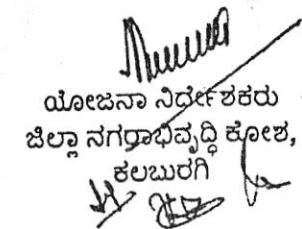 ಯೋಜನಾ ನಿರ್ದೇಶಕರು
ಜಿಲ್ಲಾ ನಗರಾಭಿವೃದ್ಧಿ ಕೋಶ,
ಕಲಬುರಗಿ